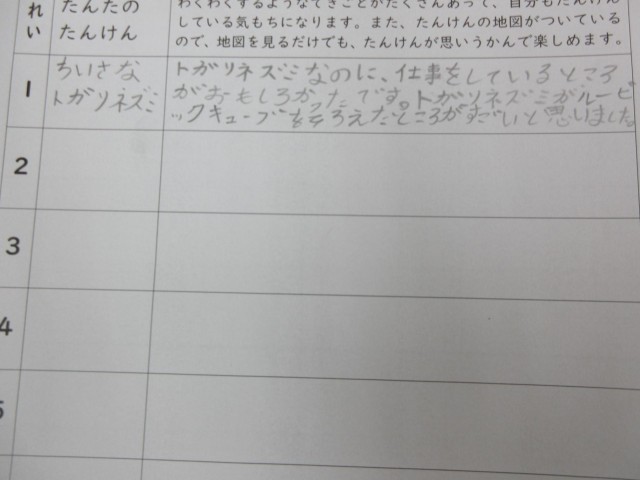 れい
たんたの
たんけん
わくわくするようなできごとがたくさんあって、自分もたんけん
している気もちになります。また、たんけんの地図がついている
ので、地図を見るだけでも、たんけんが思いうかんで楽しめます。
1
ちいさな
トガリネズミ
トガリネズミなのに、仕事をしているところ
がおもしろかったです。トガリネズミがルービ
ックキューブをそろえたところがすごいと思いました。
2
3
4
5